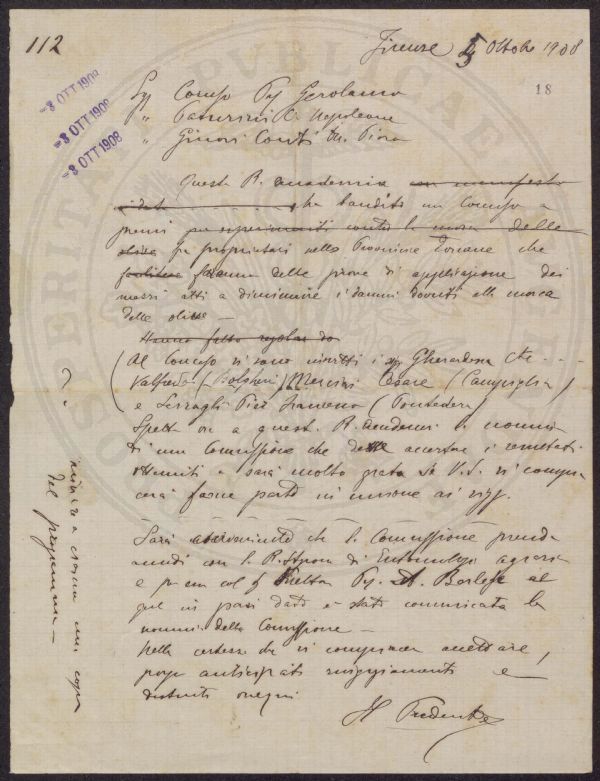 112
Firenze 5 Ottobre 1908
18
-8 OTT 1908
-8 OTT 1908
-8 OTT 1908
Sig Caruso Prof Gerolamo
" Passerini C. Napoleone
" Ginori Conti Piero
Questa R. Accademia con manifesto
ha bandito un Concorso a
premi per esperimenti contro la mosca delle
olive fra proprietari nelle Provincie Toscane che
faranno delle prove di applicazione dei
mezzi atti a diminuire i danni dovuti alla mosca
delle olive —
Hanno fatto
(Al Concorso si sono inscritti i Sig Gherardesca
Valfredo (Bolgheri) Cesare (Campiglia)
e Serragli Pier Francesco (Pontedera)
Spetta ora a questa R. Accademia la nomina
di una Commissione che deve accertare i resultati
ottenuti e sarà molto grata se V.S. si compia
cerà farne parte in unione ai sigg.
Sarà che la Commissione prenda
accordi con la R. Stazione di Entomologia agraria
e per essa col Prof A. Berlese al
quale in pari data è stata comunicata la
nomina della Commissione —
Nella certezza che vi compiacerà accettare,
porgo anticipati ringraziamenti e
distinti ossequi
Il Presidente
copia
del programma —